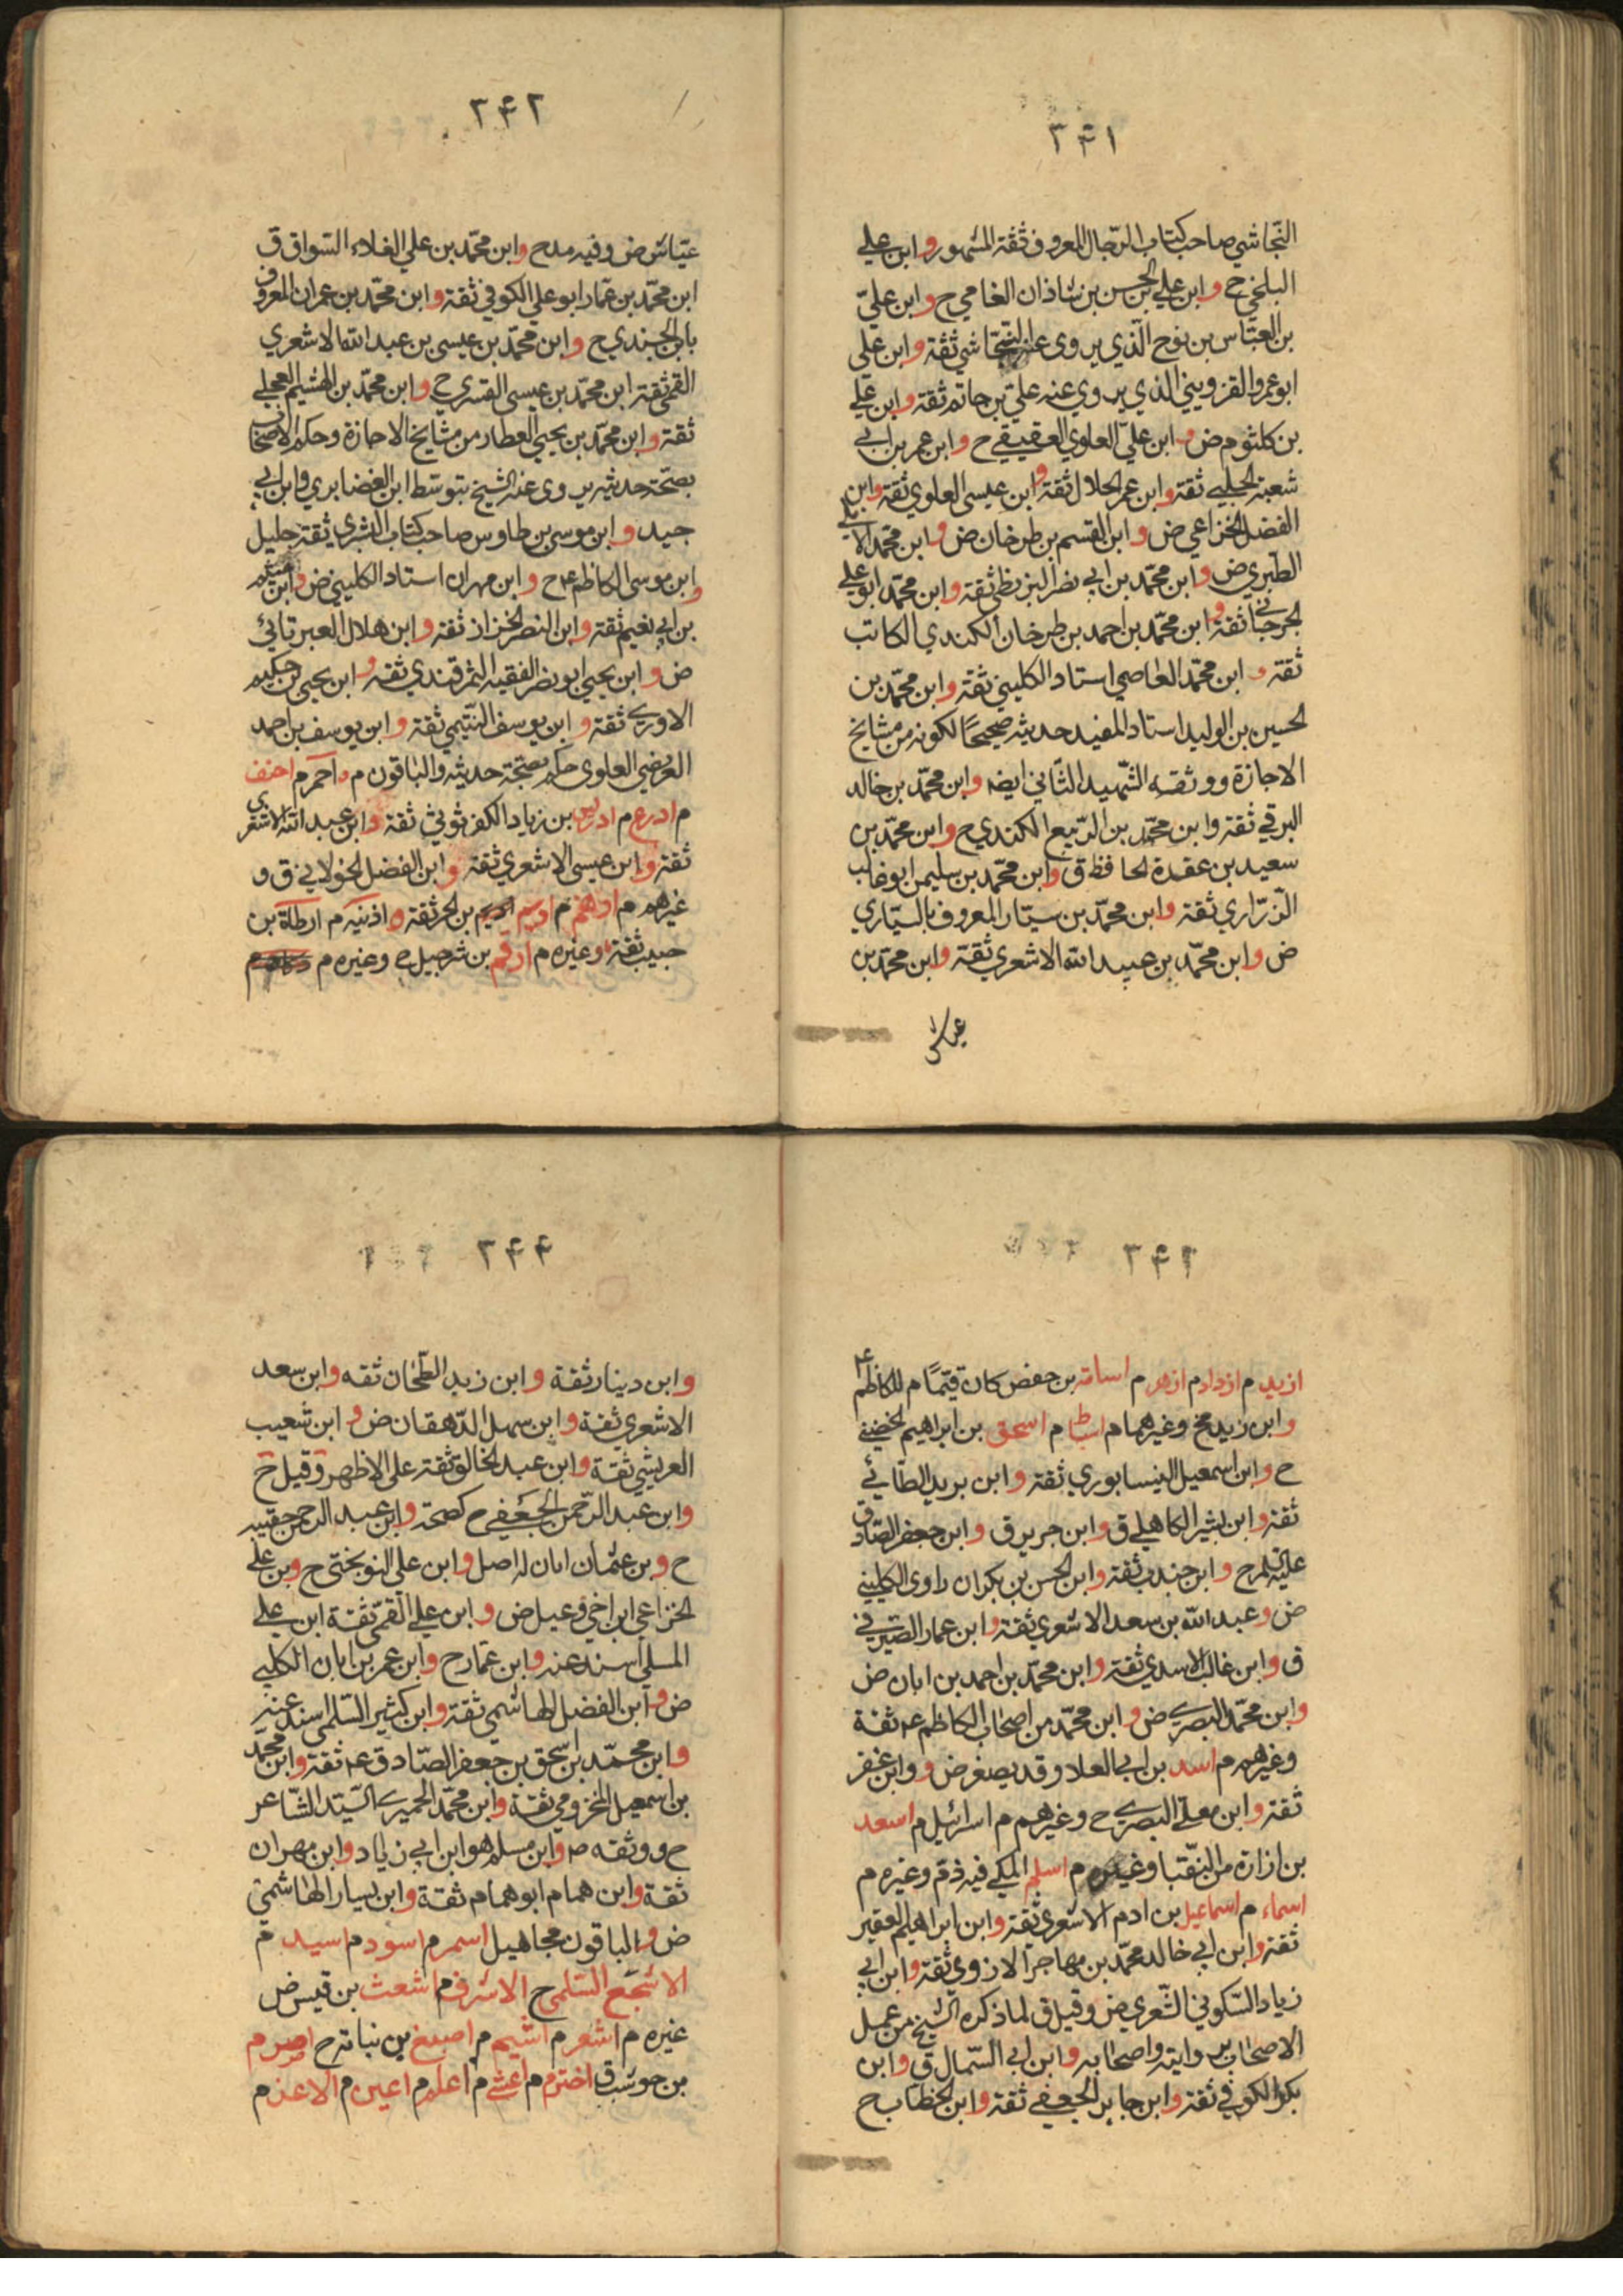 ٢٤١
النّجاشي صاحب كتاب الرّجال المعروف ثقة المشهور وابن علي
البلخي ح وابن علي بن الحسن بن شاذان الفامي ح وابن عليّ
بن العبّاس بن نوح الّذي يروى عنه النّجّاشي ثقة وابن على
ابو عمرو القزويني الذي يروي عنه عليّ بن حاتم ثقة وابن عليّ
بن كلثوم ض و ابن عليّ العلوي العقيقي ح وابن عمر بن ابي
شعبة الحلبي ثقة وابن عمر الحلال ثقة و ابن عيسى العلوي ثقة وابن
الفضل الخزاعي ض و ابن القسم بن طرخان ض و ابن محمّد الاملي
الطبري ض وابن محمّد بن ابي نصر البزنطي ثقة وابن محمّد ابو علي
الجرجاني ثقة و ابن محمّد بن احمد بن طرخان الكندي الكاتب
ثقة و ابن محمّد العاصمي استاد الكليني ثقة وابن محمّد بن
الحسين بن الوليد استاد المفيد حديثه صحيحًا لكونه من مشايخ
الاجازة ووثقه الشّهيد الثّاني ايضه وابن محمّد بن خالد
البرقي ثقة وابن محمّد بن الرّبيع الكندي ح وابن محمّد بن
سعيد بن عقدة الحافظ ق وابن محمّد بن سليمن ابو غالب
الزّراري ثقة وابن محمّد بن سيّار المعروف بالسيّاري
ض وابن محمّد بن عبيد الله الاشعري ثقة وابن محمّد بن
عياش
٢٤٢
عيّاش ض وفيه مدح وابن محمّد بن علي الغلاء السّواق ق
ابن محمّد بن عمّار ابو علي الكوفي ثقة وابن محمّد بن عمران المعروف
بابن الجندي ح وابن محمّد بن عيسى بن عبد الله الاشعري
القمّي ثقة ابن محمّد بن عيسى القسري ح وابن محمّد بن الهشيم العجلي
ثقة وابن محمّد بن يحيى العطار من مشايخ الاجازة وحكم الاصحاب
بصحّة حديثه يروى عنه الشيخ بتوسّط ابن الغضايري وابن ابي
جيد وابن موسى بن طاوس صاحب كتاب البشرى ثقة جليل
وابن موسى الكاظم ع ح وابن مهران استاد الكليني ض وابن ميثم
بن ابي نعيم ثقة وابن النضر الخزاز ثقة وابن هلال العبرتائي
ض وابن يحيى ابو نصر الفقيه السّمرقندي ثقة و ابن يحيى بن حكيم
الاودي ثقة وابن يوسف التّيمي ثقة وابن يوسف بن احمد
العريضي العلوى حكم بصحّة حديثه والباقون م و احمرم احنف
م ادرع م ادريس بن زياد الكفرثوثي ثقة وابن عبد الله الاشعري
ثقة وابن عيسى الاشعري ثقة وابن الفضل الخولاني ق و
غيرهم م ادهم م اديم بن الحر ثقة و اذينه م ارطاة بن
حبيب ثقة وغيره م ارقم بن شرحبيل ح وغيره م
٢٤٣
ازيد م ازداد م ازهر م اسامة بن حفص كان قيّمًا م للكاظم ع
وابن زيد مخ وغيرهما م اسباط م اسحق بن ابراهيم الحضيني
ح وابن اسمعيل النيسابوري ثقة وابن بريد الطّائي
ثقة وابن بشير الكاهلي ق وابن جرير ق وابن جعفر الصّادق
عليه السلام ح وابن جندب ثقة وابن الحسن بن بكران راوى الكليني
ض وعبد الله بن سعد الاشعري ثقة وابن عمار الصّيرفي
ق وابن غالب الاسدي ثقة وابن محمّد بن احمد بن ابان ض
وابن محمّد البصري ض وابن محمّد من اصحاب الكاظم ع ثقة
وغيرهم م اسد بن ابي العلا وقد يصغر ض و وابن عفر
ثقة وابن معلّي البصري ح وغيرهم م اسرائيل م اسعد
بن زارة من النقبا وغيره م اسلم المكي فيه ذم وغيره م
اسماء م اسماعيل بن ادم الاشعري ثقة وابن ابراهيم العقير
ثقة وابن ابي خالد محمّد بن مهاجر الازدي ثقة وابن ابي
زياد السّكوني الشّعري ض وقيل ق لما ذكره الشّيخ من عمل
الاصحاب بروايته واصحابه وابن ابي السّمال ق وابن
بكر الكوفي ثقة وابن جابر الجعفي ثقة وابن الخطاب ح
٢٤٤
وابن دينار ثقة وابن زيد الطّحّان ثقه وابن سعد
الاشعري ثقة وابن سهل الدّهقان ض و ابن شعيب
العريشي ثقة وابن عبد الخالق ثقة على الاظهر وقيل ح
وابن عبد الرّحمن الجعفي ح كصحته وابن عبد الرحمن حقيبه
ح وبن عثمان ابان له اصل وابن على النوبختي ح وبن على
الخزاعي ابن اخي دعبل ض و ابن علي القمّي ثقة ابن علي
المسلي اسند عنه وابن عمّار ح وابن عمر بن ابان الكلبي
ض وابن الفضل الهاشمي ثقة وابن كثير السّلمي اسند عنه
وابن محمّد بن اسحق بن جعفر الصّادق ع ثقة وابن محمد
بن اسمعيل المخزومي ثقة وابن محمّد الحميري السّيّد الشّاعر
ح ووثقه صه وابن مسلم هو ابن ابي زياد وابن مهران
ثقة وابن همام ابو همام ثقة وابن يسار الهاشمي
ض والباقون مجاهيل اسمر م اسود م اسيد م
الاشجع السّلمي ح الاشرف م اشعث بن قيس ض
غيره م اشعر م اشيم م اصبغ بن نباته ح اصرم
بن حوشب ق اخترم م اعشي م اعلم م اعين م الاغر م